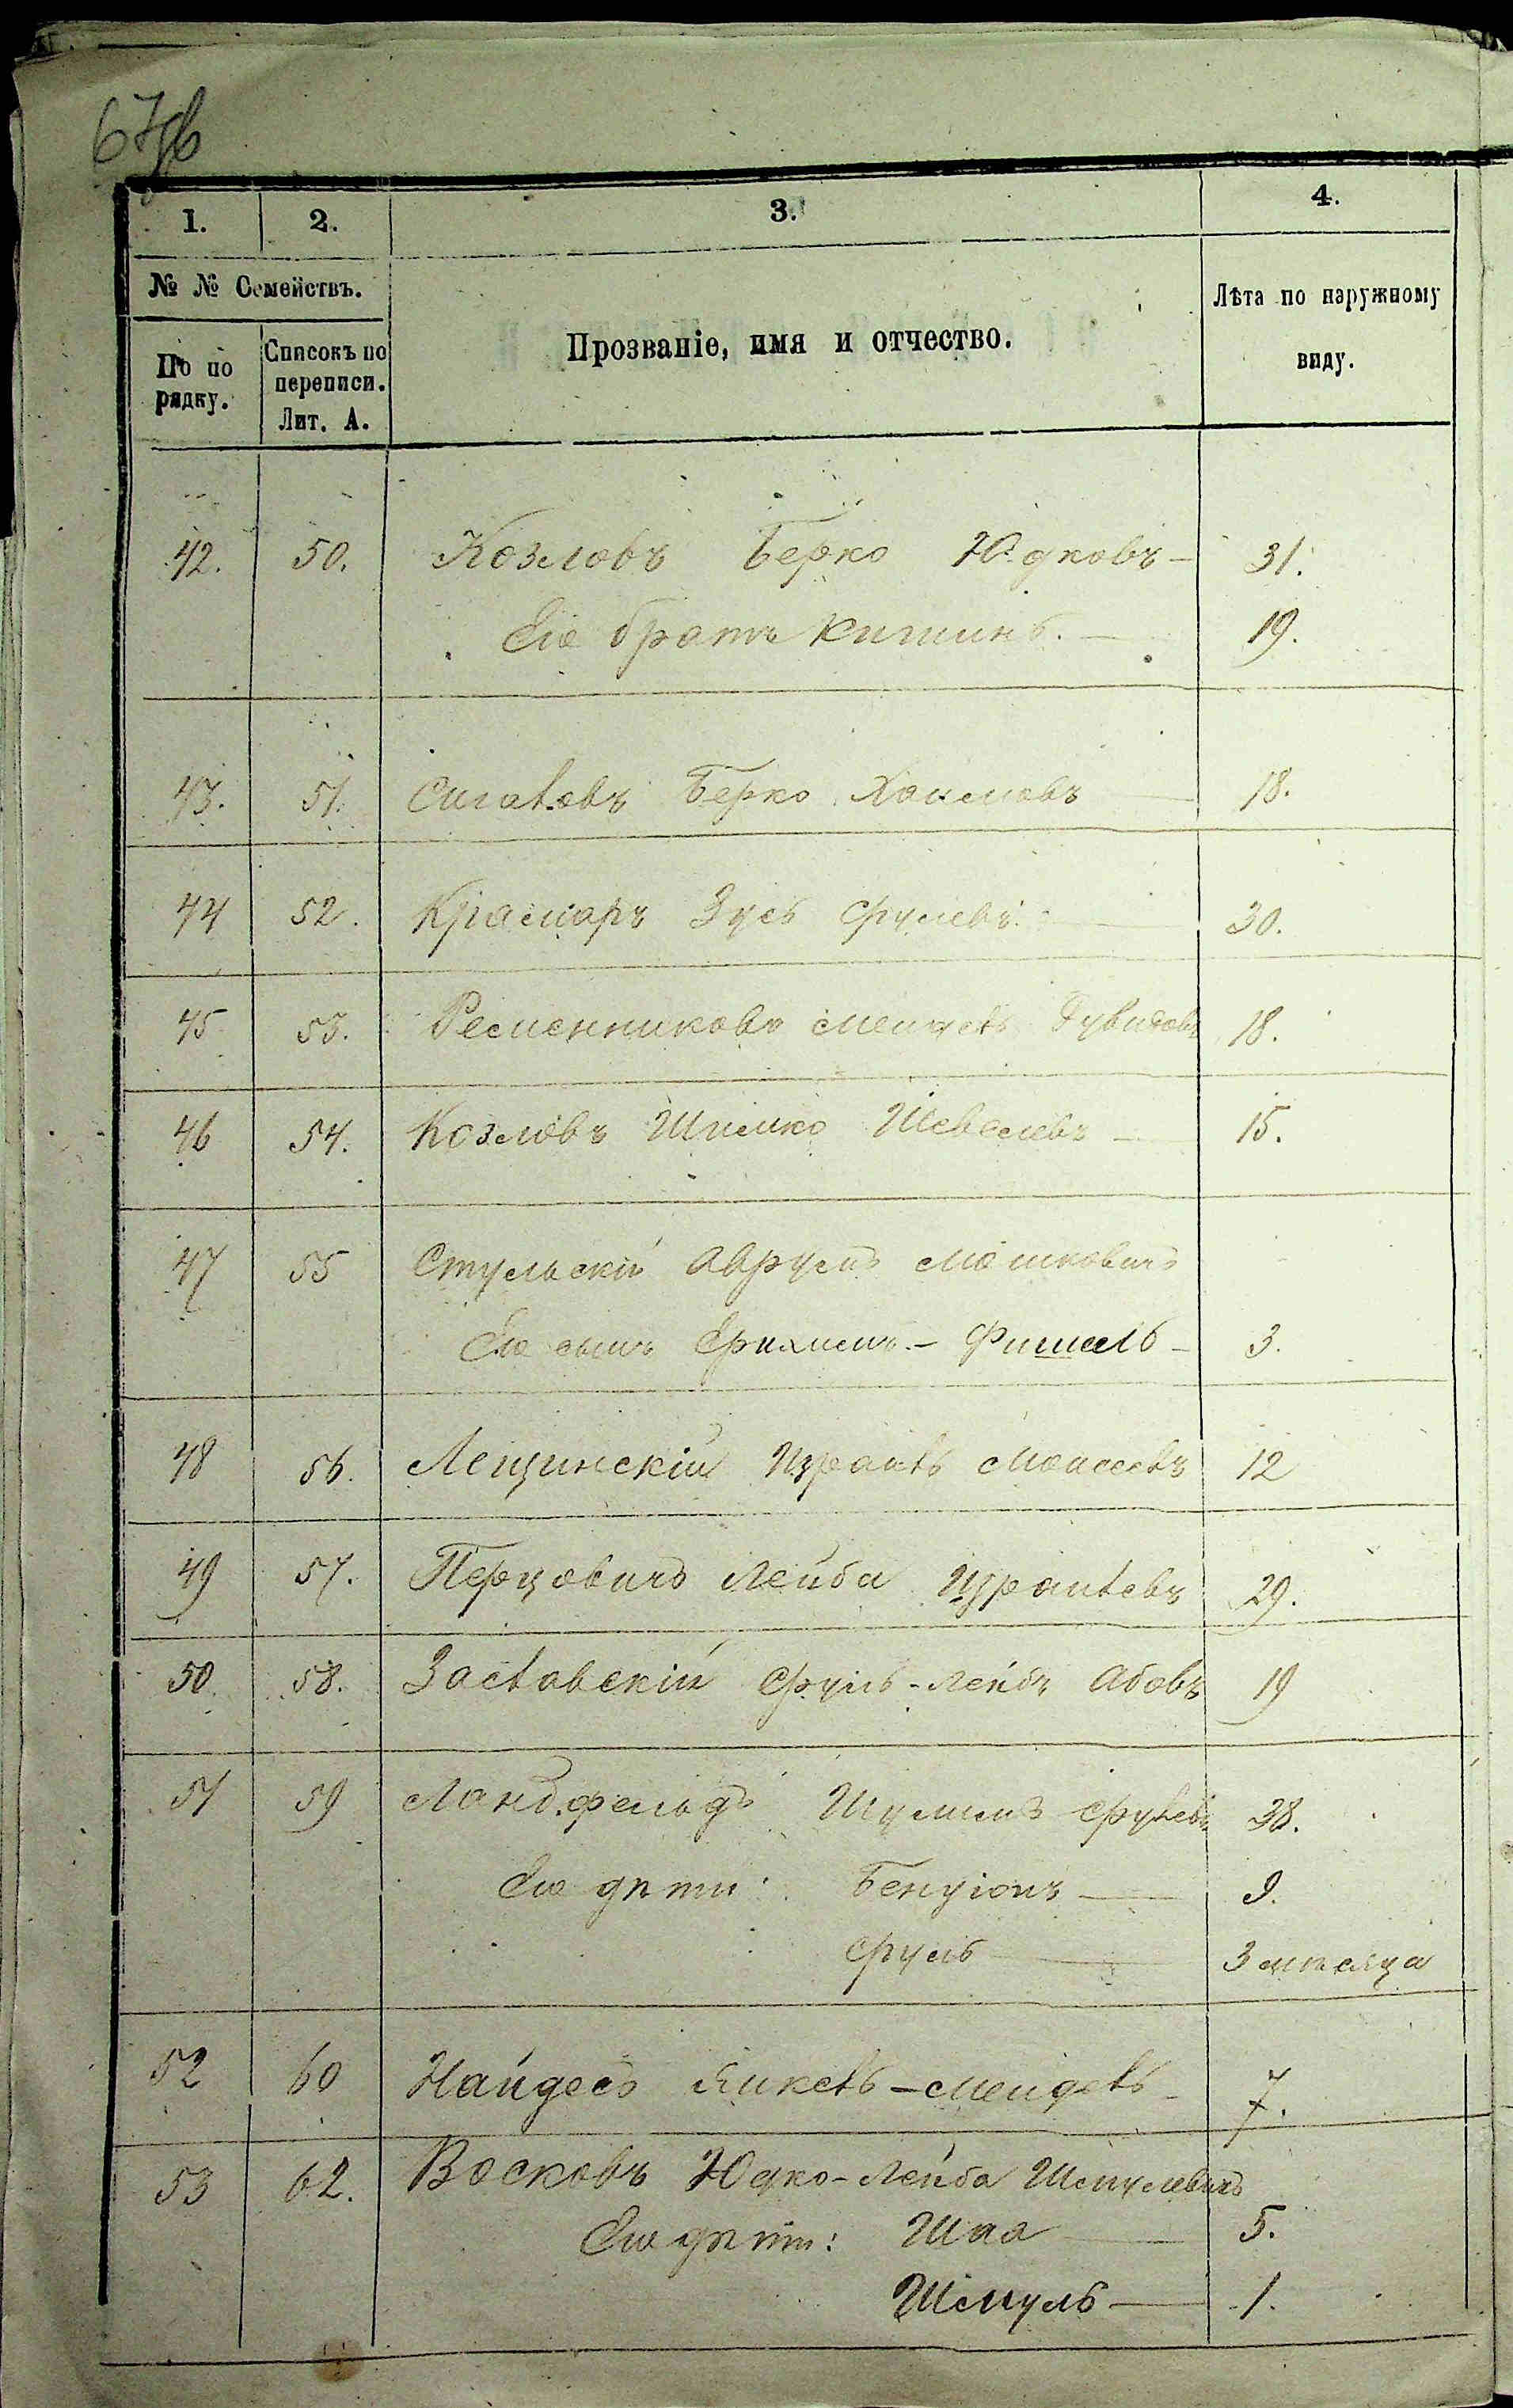 67об
1. 2. 3. 4.
№ № Семействъ.
По по рядку.
Списокъ по переписи. Лит. А.
Прозваніе, имя и отчество.
Лѣта по наружному виду.
42. 50. Козловъ Берко Юдковъ — 31.
Его братъ — 19.
43. 51. Сигаловъ Берко Хаимовъ — 18.
44 52. Крамаръ Зусь Срулевъ — 30.
45 53. Ременниковъ Мендель Дувидовъ 18.
46 54. Козловъ Шлемко Шевелевъ — 15.
47 55 Стульскій Аврумъ Мошковичъ
Его сынъ Ерихимъ - Фишель — 3.
48 56. Лещинскій Израиль Моисеевъ 12
49 57. Перцовичъ Лейба Израилевъ 29.
50. 58. Заславскій Сруль-Лейбъ Абовъ 19
51 59 Ландфельдъ Шулимъ Срулевъ 38.
Его дѣти: Бенціонъ — 9.
Сруль — 3 мѣсяца
52 60 Найдесъ Янкель-Мендель — 7.
53 62. Восковъ Юдко-Лейба Шмулевичъ
Его дѣти: Шая — 5.
Шмуль — 1.